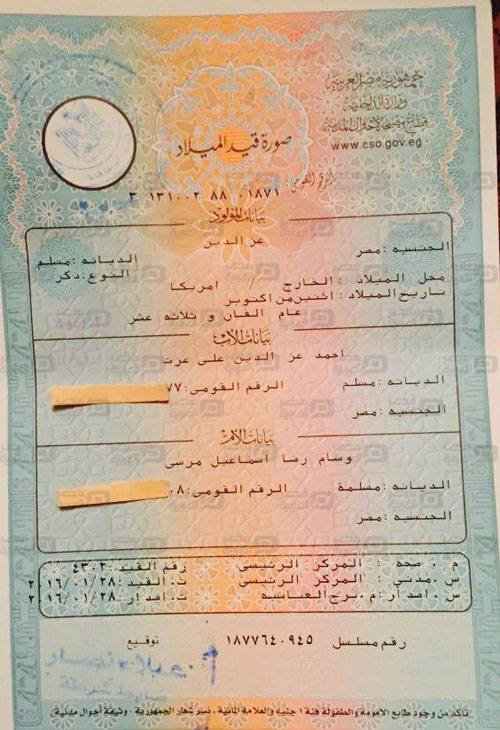 جمهورية مصر العربية
وزارة الداخلية
قطاع مصلحة الأحوال المدنية
www.cso.gov.eg
صورة قيد الميلاد
الرقم القومى:
٣ ١٣١٠٠٢ ٨٨ ٠١٨٧١
بيانات المولود
عز الدين
الجنسيه :مصر
الديانه :مسلم
النوع :ذكر
محل الميلاد : الخارج / امريكا
تاريخ الميلاد : اثنين من اكتوبر
عام الفان و ثلاثه عشر
بيانات الأب
احمد عز الدين على عزت
الديانه :مسلم
الرقم القومى:٧٧
الجنسيه :مصر
بيانات الأم
وسام رضا اسماعيل مرسى
الديانه :مسلمة
الرقم القومى:٠٨
الجنسيه :مصر
م . صحه : المركز الرئيسى
رقم القيد :٤٣٠٢
س .مدني : المركز الرئيسى
ت. القيد :٢٠١٦/٠١/٢٨
س . اصدار :م .برج العباسيه
ت. اصدار :٢٠١٦/٠١/٢٨
رقم مسلسل ١٨٧٧٦٤٠٩٤٥
توقيع:
تأكد من وجود طابع الأمومة والطفولة فئة ١ جنيه والعلامة المائية . نسر شعار الجمهورية - وثيقة أحوال مدنية .